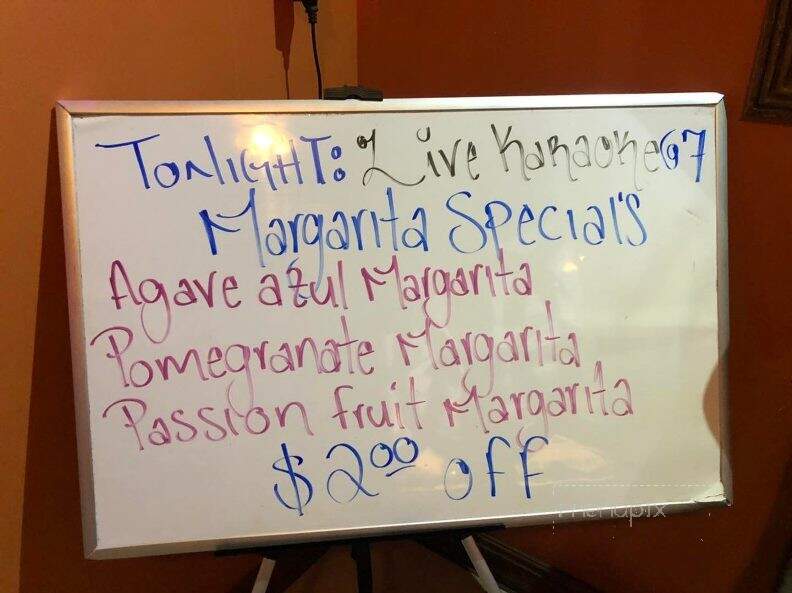 TONIGHT: Live Karaoke @7
Margarita Special's
Agave azul Margarita
Pomegranate Margarita
Passion fruit Margarita
$2.00 off
menupix